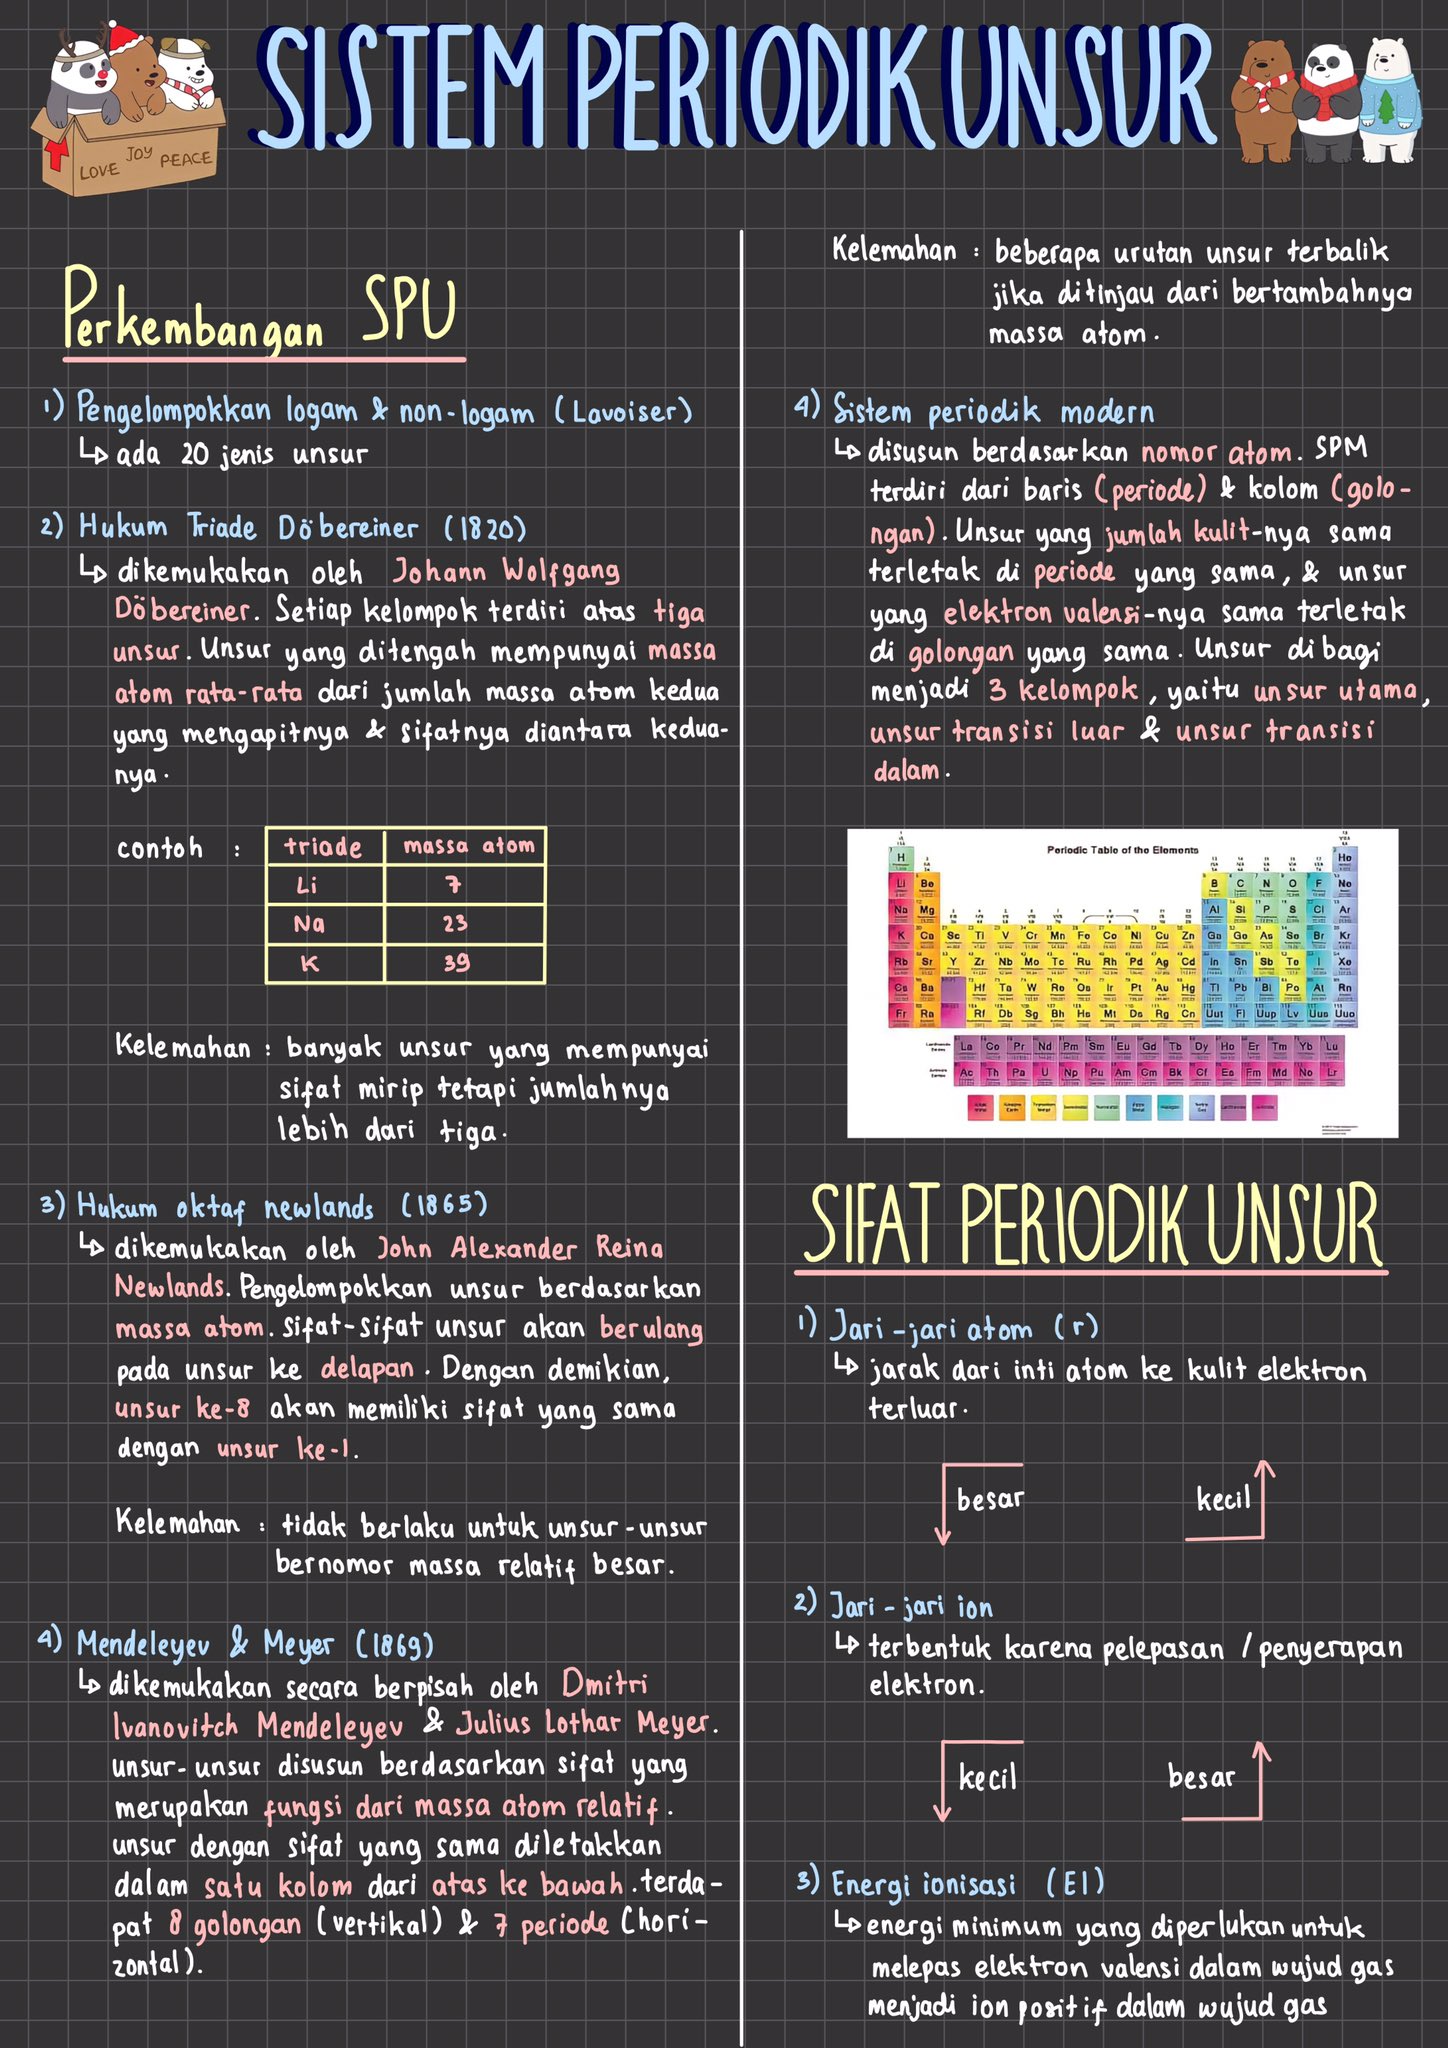 SISTEM PERIODIK UNSUR
LOVE JOY PEACE
Perkembangan SPU
1) Pengelompokkan logam & non-logam (Lavoiser)
↳ ada 20 jenis unsur
2) Hukum Triade Döbereiner (1820)
↳ dikemukakan oleh Johann Wolfgang
Döbereiner. Setiap kelompok terdiri atas tiga
unsur. Unsur yang ditengah mempunyai massa
atom rata-rata dari jumlah massa atom kedua
yang mengapitnya & sifatnya diantara kedua-
nya.
contoh :
triade massa atom
Li 7
Na 23
K 39
Kelemahan : banyak unsur yang mempunyai
sifat mirip tetapi jumlahnya
lebih dari tiga.
3) Hukum oktaf newlands (1865)
↳ dikemukakan oleh John Alexander Reina
Newlands. Pengelompokkan unsur berdasarkan
massa atom. Sifat-sifat unsur akan berulang
pada unsur ke delapan. Dengan demikian,
unsur ke-8 akan memiliki sifat yang sama
dengan unsur ke-1.
Kelemahan : tidak berlaku untuk unsur-unsur
bernomor massa relatif besar.
4) Mendeleyev & Meyer (1869)
↳ dikemukakan secara berpisah oleh Dmitri
Ivanovitch Mendeleyev & Julius Lothar Meyer.
unsur-unsur disusun berdasarkan sifat yang
merupakan fungsi dari massa atom relatif.
unsur dengan sifat yang sama diletakkan
dalam satu kolom dari atas ke bawah. terda-
pat 8 golongan (vertikal) & 7 periode (hori-
zontal).
Kelemahan : beberapa urutan unsur terbalik
jika ditinjau dari bertambahnya
massa atom.
4) Sistem periodik modern
↳ disusun berdasarkan nomor atom. SPM
terdiri dari baris (periode) & kolom (golo-
ngan). Unsur yang jumlah kulit-nya sama
terletak di periode yang sama, & unsur
yang elektron valensi-nya sama terletak
di golongan yang sama. Unsur dibagi
menjadi 3 kelompok, yaitu unsur utama,
unsur transisi luar & unsur transisi
dalam.
Periodic Table of the Elements
H He
Li Be B C N O F Ne
Na Mg Al Si P S Cl Ar
K Ca Sc Ti V Cr Mn Fe Co Ni Cu Zn Ga Ge As Se Br Kr
Rb Sr Y Zr Nb Mo Tc Ru Rh Pd Ag Cd In Sn Sb Te I Xe
Cs Ba Hf Ta W Re Os Ir Pt Au Hg Tl Pb Bi Po At Rn
Fr Ra Rf Db Sg Bh Hs Mt Ds Rg Cn Uut Fl Uup Lv Uus Uuo
La Ce Pr Nd Pm Sm Eu Gd Tb Dy Ho Er Tm Yb Lu
Ac Th Pa U Np Pu Am Cm Bk Cf Es Fm Md No Lr
SIFAT PERIODIK UNSUR
1) Jari-jari atom (r)
↳ jarak dari inti atom ke kulit elektron
terluar.
besar kecil
2) Jari-jari ion
↳ terbentuk karena pelepasan / penyerapan
elektron.
kecil besar
3) Energi ionisasi (EI)
↳ energi minimum yang diperlukan untuk
melepas elektron valensi dalam wujud gas
menjadi ion positif dalam wujud gas